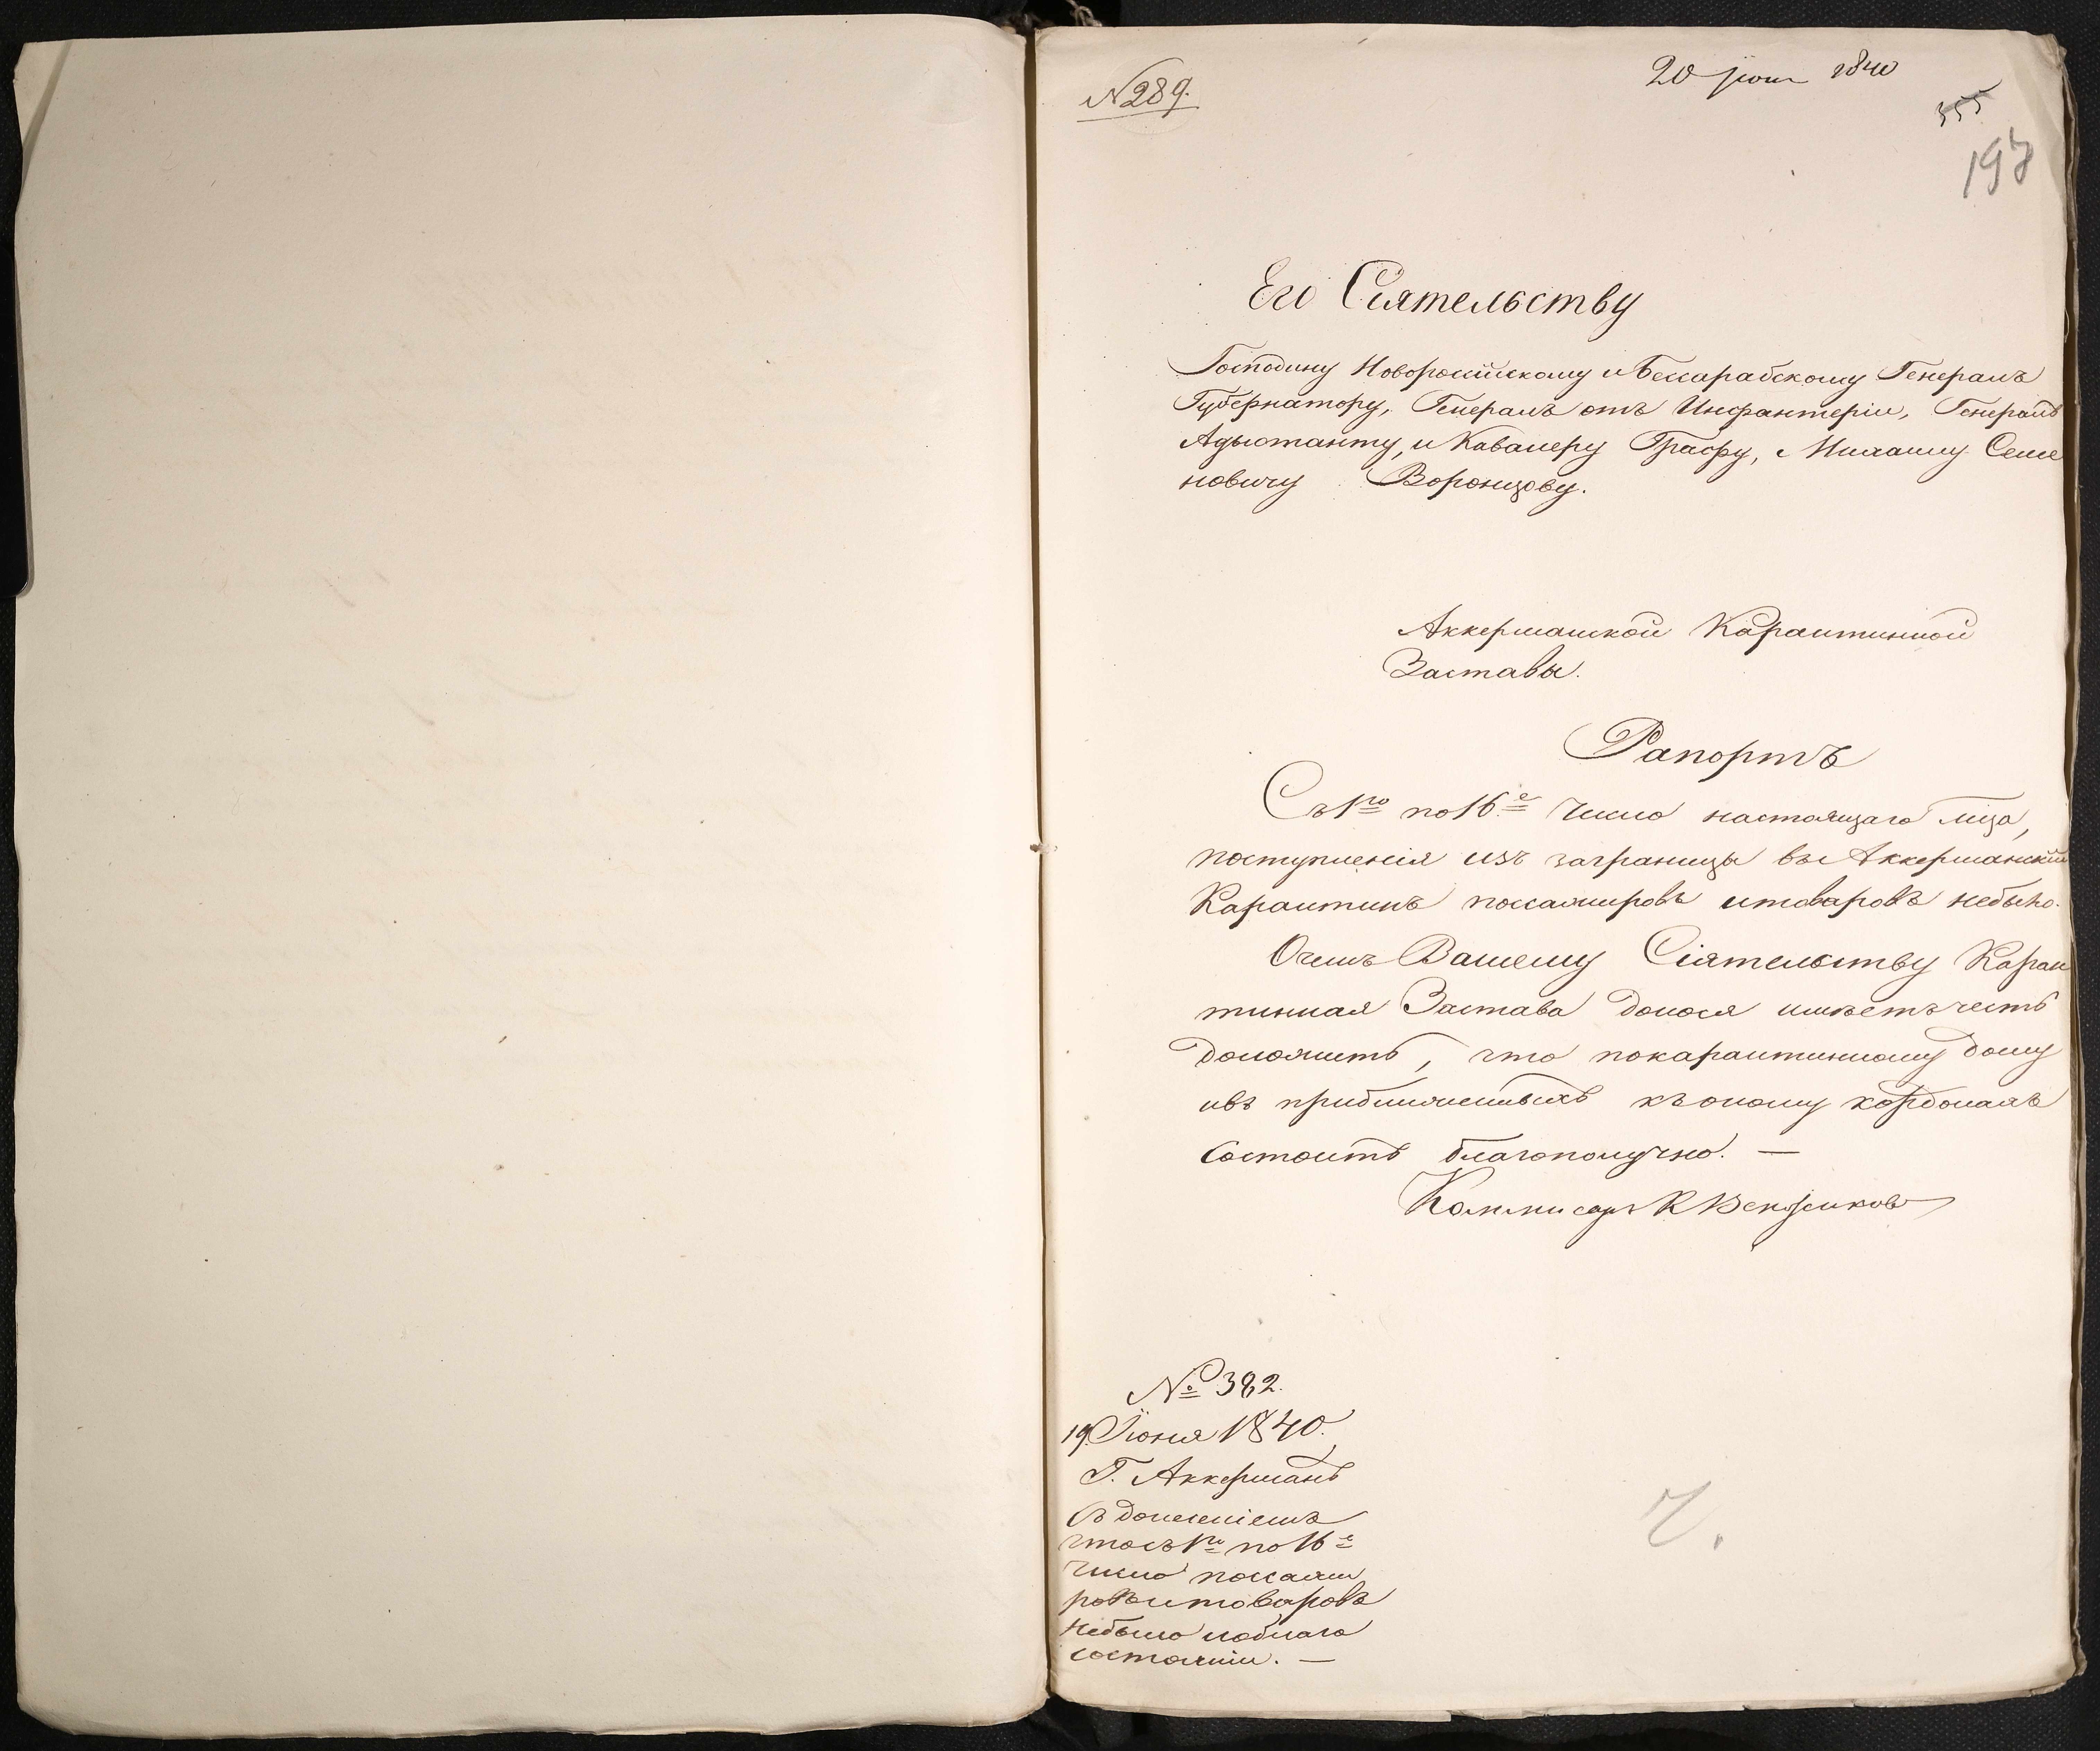 № 289.
20 Іюня 1840
355
198
Его Сіятельству
Господину Новоросійскому и Бессарабскому Генералъ
Губернатору, Генералъ отъ Инфантеріи, Генералъ
Адьютанту, и Кавалеру Графу, Михаилу Семе
новичу Воронцову.
Аккерманской Карантинной
Заставы.
Рапортъ
Съ 1го по 16е число настоящаго м͠ца,
поступленія изъ заграницы въ Аккерманскій
Карантинъ пассажировъ итоваровъ небыло.
Очемъ Вашему Сіятельству Каран
тинная Застава донося имѣетъ честь
доложить, что покарантинному дому
ивъ приближенныхъ къ оному кордонахъ
состоитъ благополучно. —
Коммисаръ
№ 382.
19 Іюня 1840.
Г. Аккерманъ
Съ донесеніемъ
что съ 1го по 16е
число пассажи
ровъ итоваровъ
небыло иоблаго
состояніи. —
Ч.